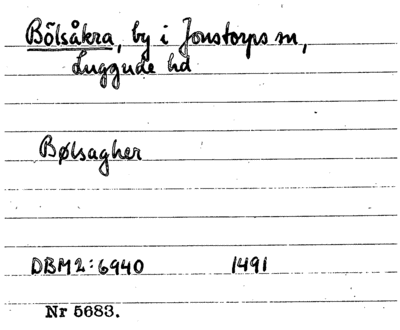 Bölsåkra, by i Jonstorps sn,
Luggude hd
Bølsagher
DBM2:6940 1491
Nr 5683.